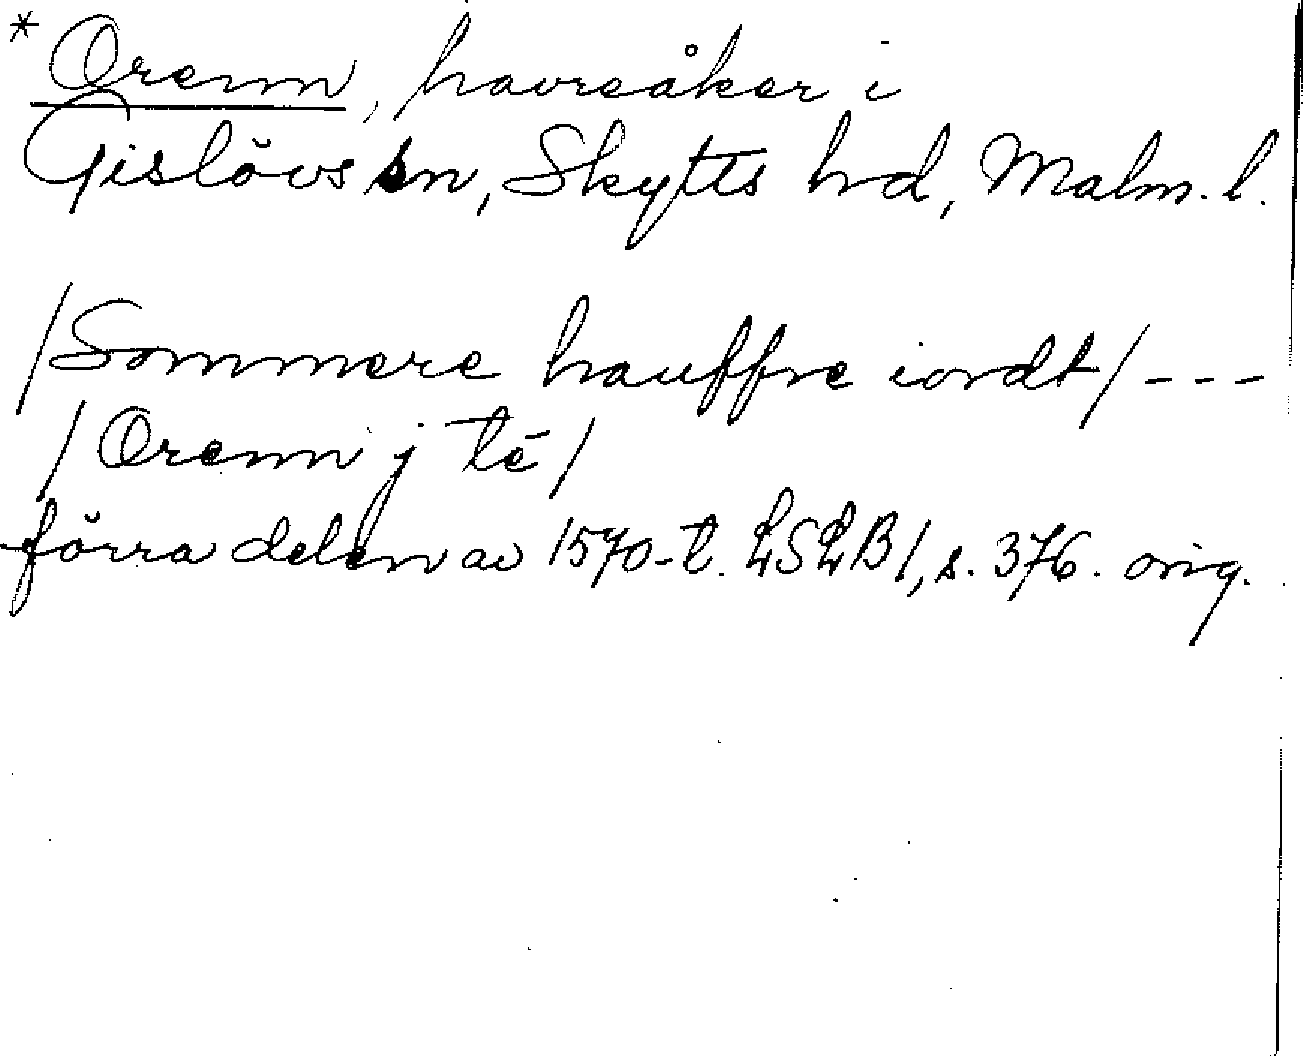 * Orenn, havreåker i
Gislövs sn, Skytts hd, Malm. l.
/Sommere hauffre iordt/ - - -
/ Orenn j té /
förra delen av 1570-t. LSLB 1, s. 376. orig.